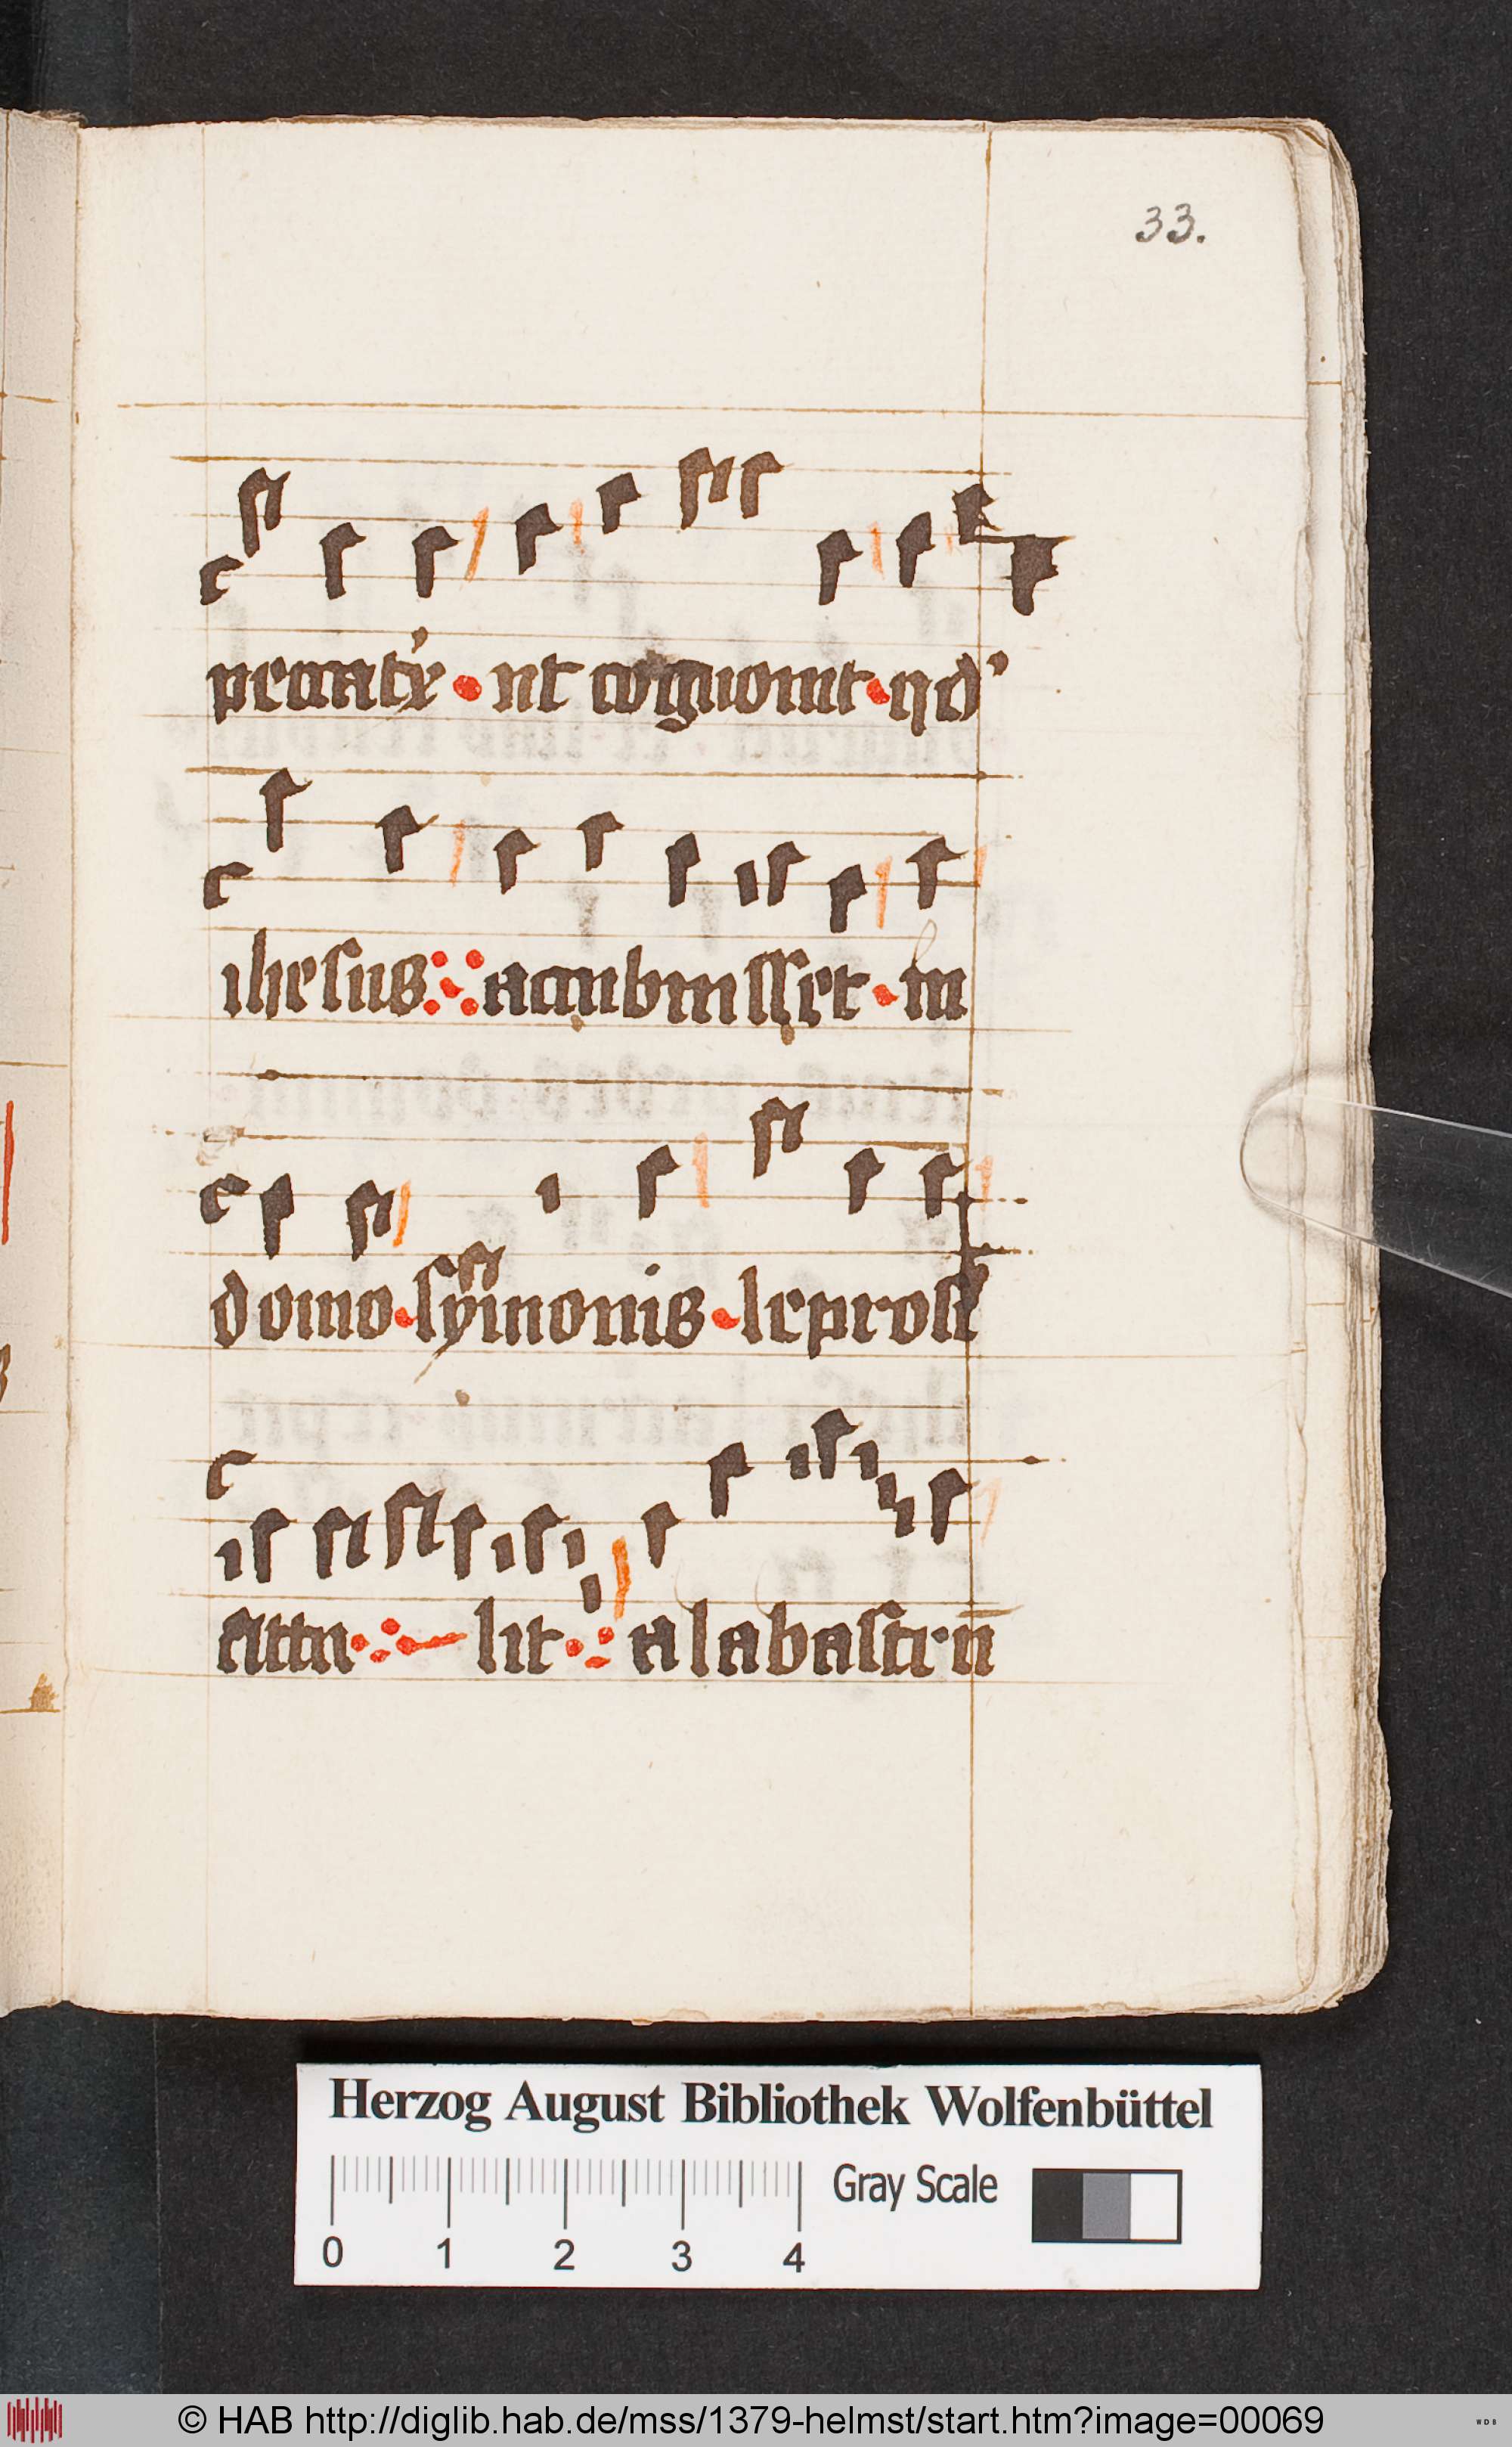 33.
peccatx̓ · ut cognouit · qd’
ihesus : accubuisset · in
domo · symonis · leprosi
attu lit : alabastrū
Herzog August Bibliothek Wolfenbüttel
Gray Scale
0 1 2 3 4
© HAB http://diglib.hab.de/mss/1379-helmst/start.htm?image=00069